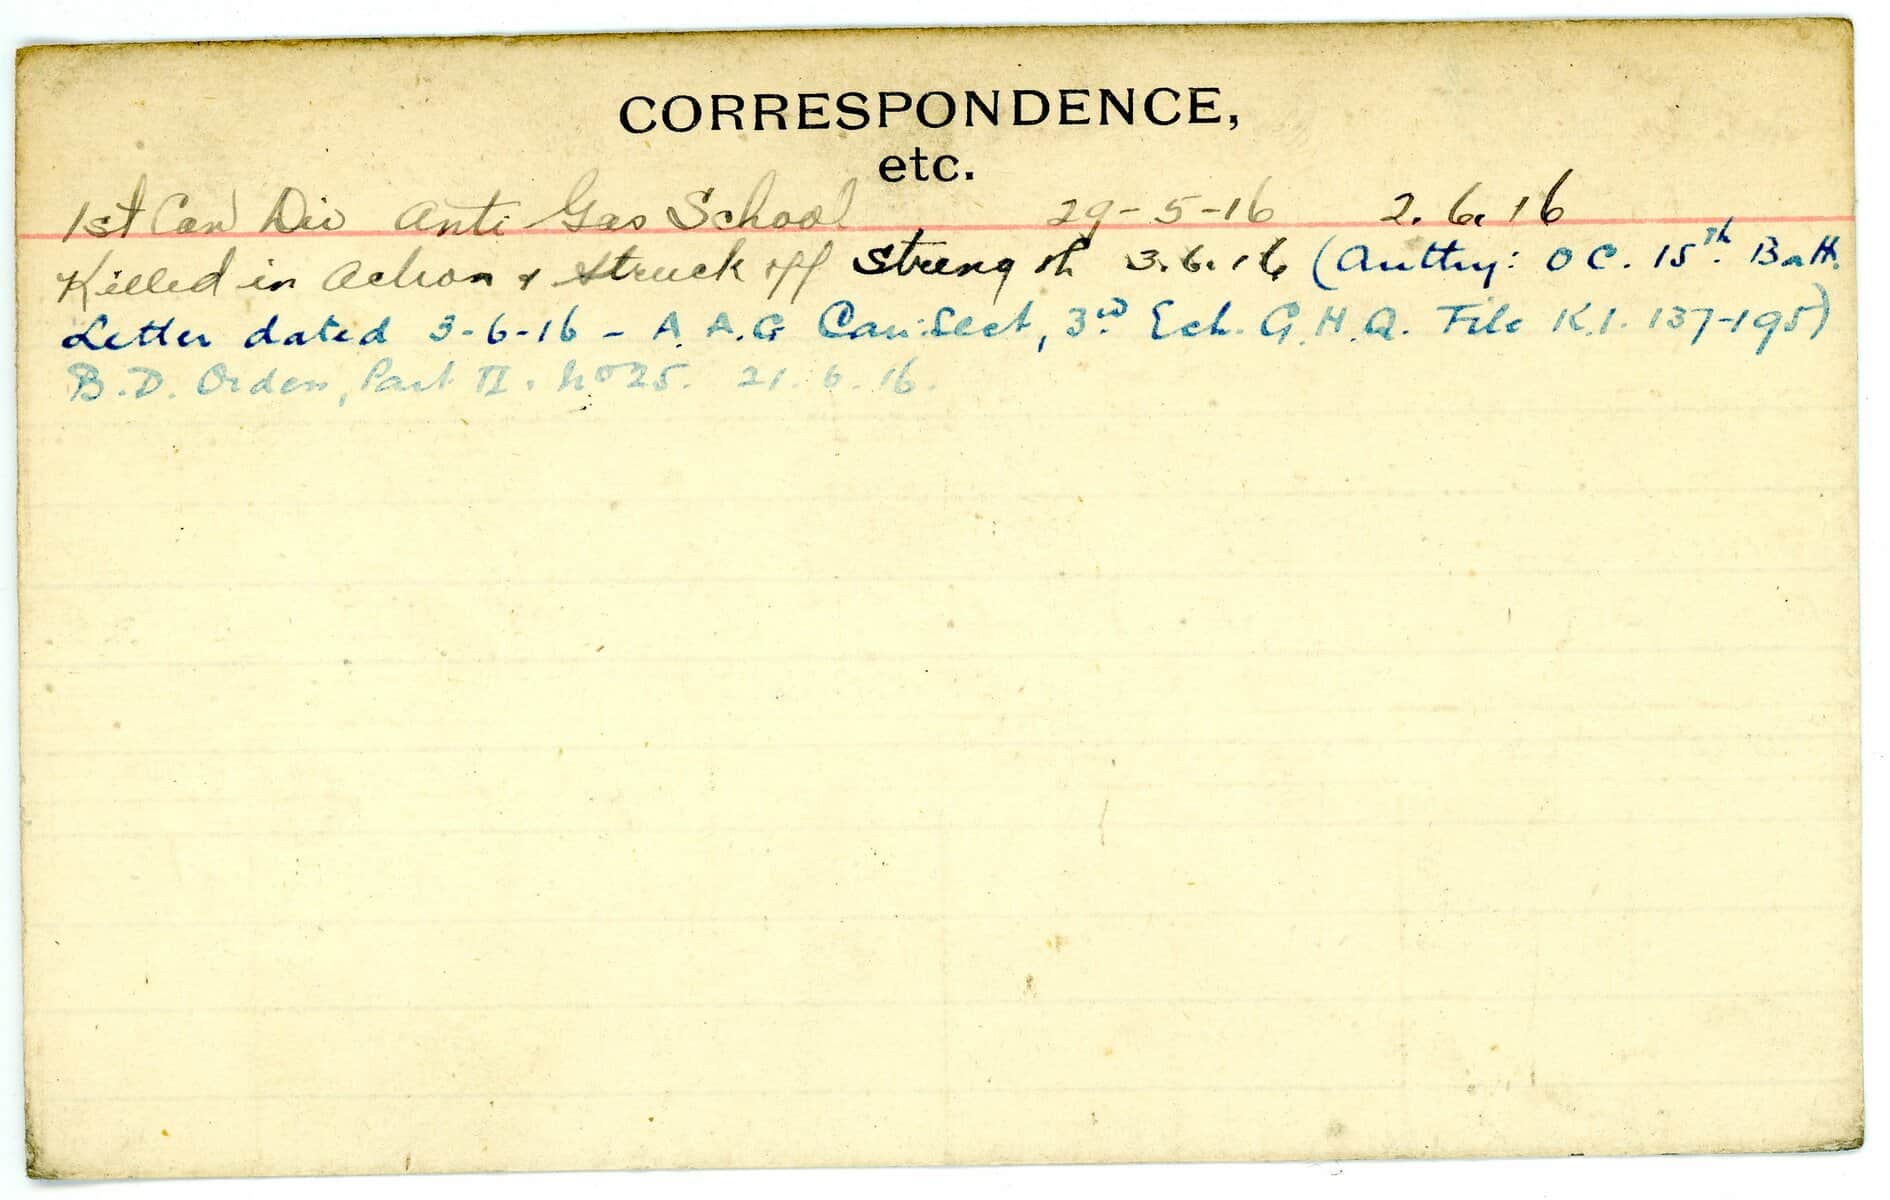 CORRESPONDENCE,
etc.
1st Can Div Anti Gas School 29-5-16 2.6.16
Killed in Action & Struck off Strength 3.6.16 (Authty: O C. 15th Batt.
Letter dated 3-6-16 - A.A.G Can: Sect, 3rd Ech. G.H.Q. File K.1. 137-195)
B.D. Orders, Part II. No 25. 21.6.16.